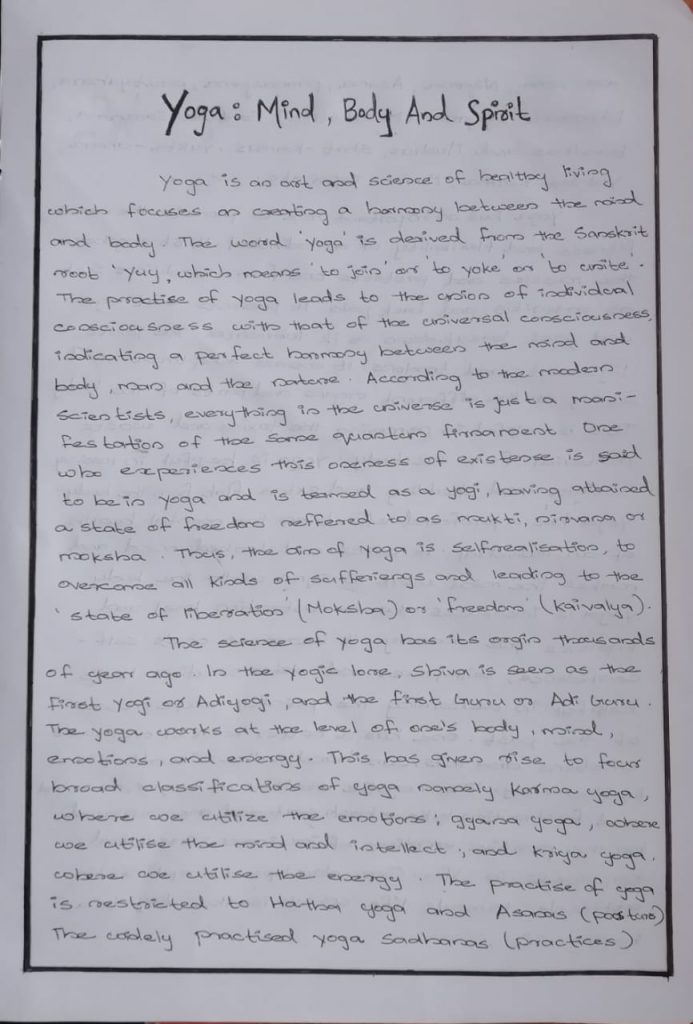 Yoga : Mind , Body And Spirit
Yoga is an art and science of healthy living
which focuses on creating a harmony between the mind
and body. The word 'yoga' is derived from the Sanskrit
root 'Yuj', which means 'to join' or 'to yoke' or 'to unite'.
The practise of yoga leads to the union of individual
consciousness with that of the universal consciousness,
indicating a perfect harmony between the mind and
body, man and the nature. According to the modern
scientists, everything in the universe is just a mani-
festation of the same quantum firmament. One
who experiences this oneness of existense is said
to be in yoga and is teamed as a yogi, having attained
a state of freedom reffered to as mukti, nirvana or
moksha. Thus, the aim of yoga is selfrealisation, to
overcome all kinds of sufferiengs and leading to the
'state of liberration' (Moksha) or 'freedom' (kaivalya).
The science of yoga has its orgin thousands
of year ago. In the yogic lore, Shiva is seen as the
first yogi or Adiyogi, and the first Guru or Adi Guru.
The yoga works at the level of one's body, mind,
emotions, and energy. This has given rise to four
broad classifications of yoga namely karma yoga,
where we utilize the emotions; gyana yoga, where
we utilise the mind and intellect; and kriya yoga,
where we utilise the energy. The practise of yoga
is restricted to Hatha yoga and Asanas
The widely practised yoga sadhanas (practices)